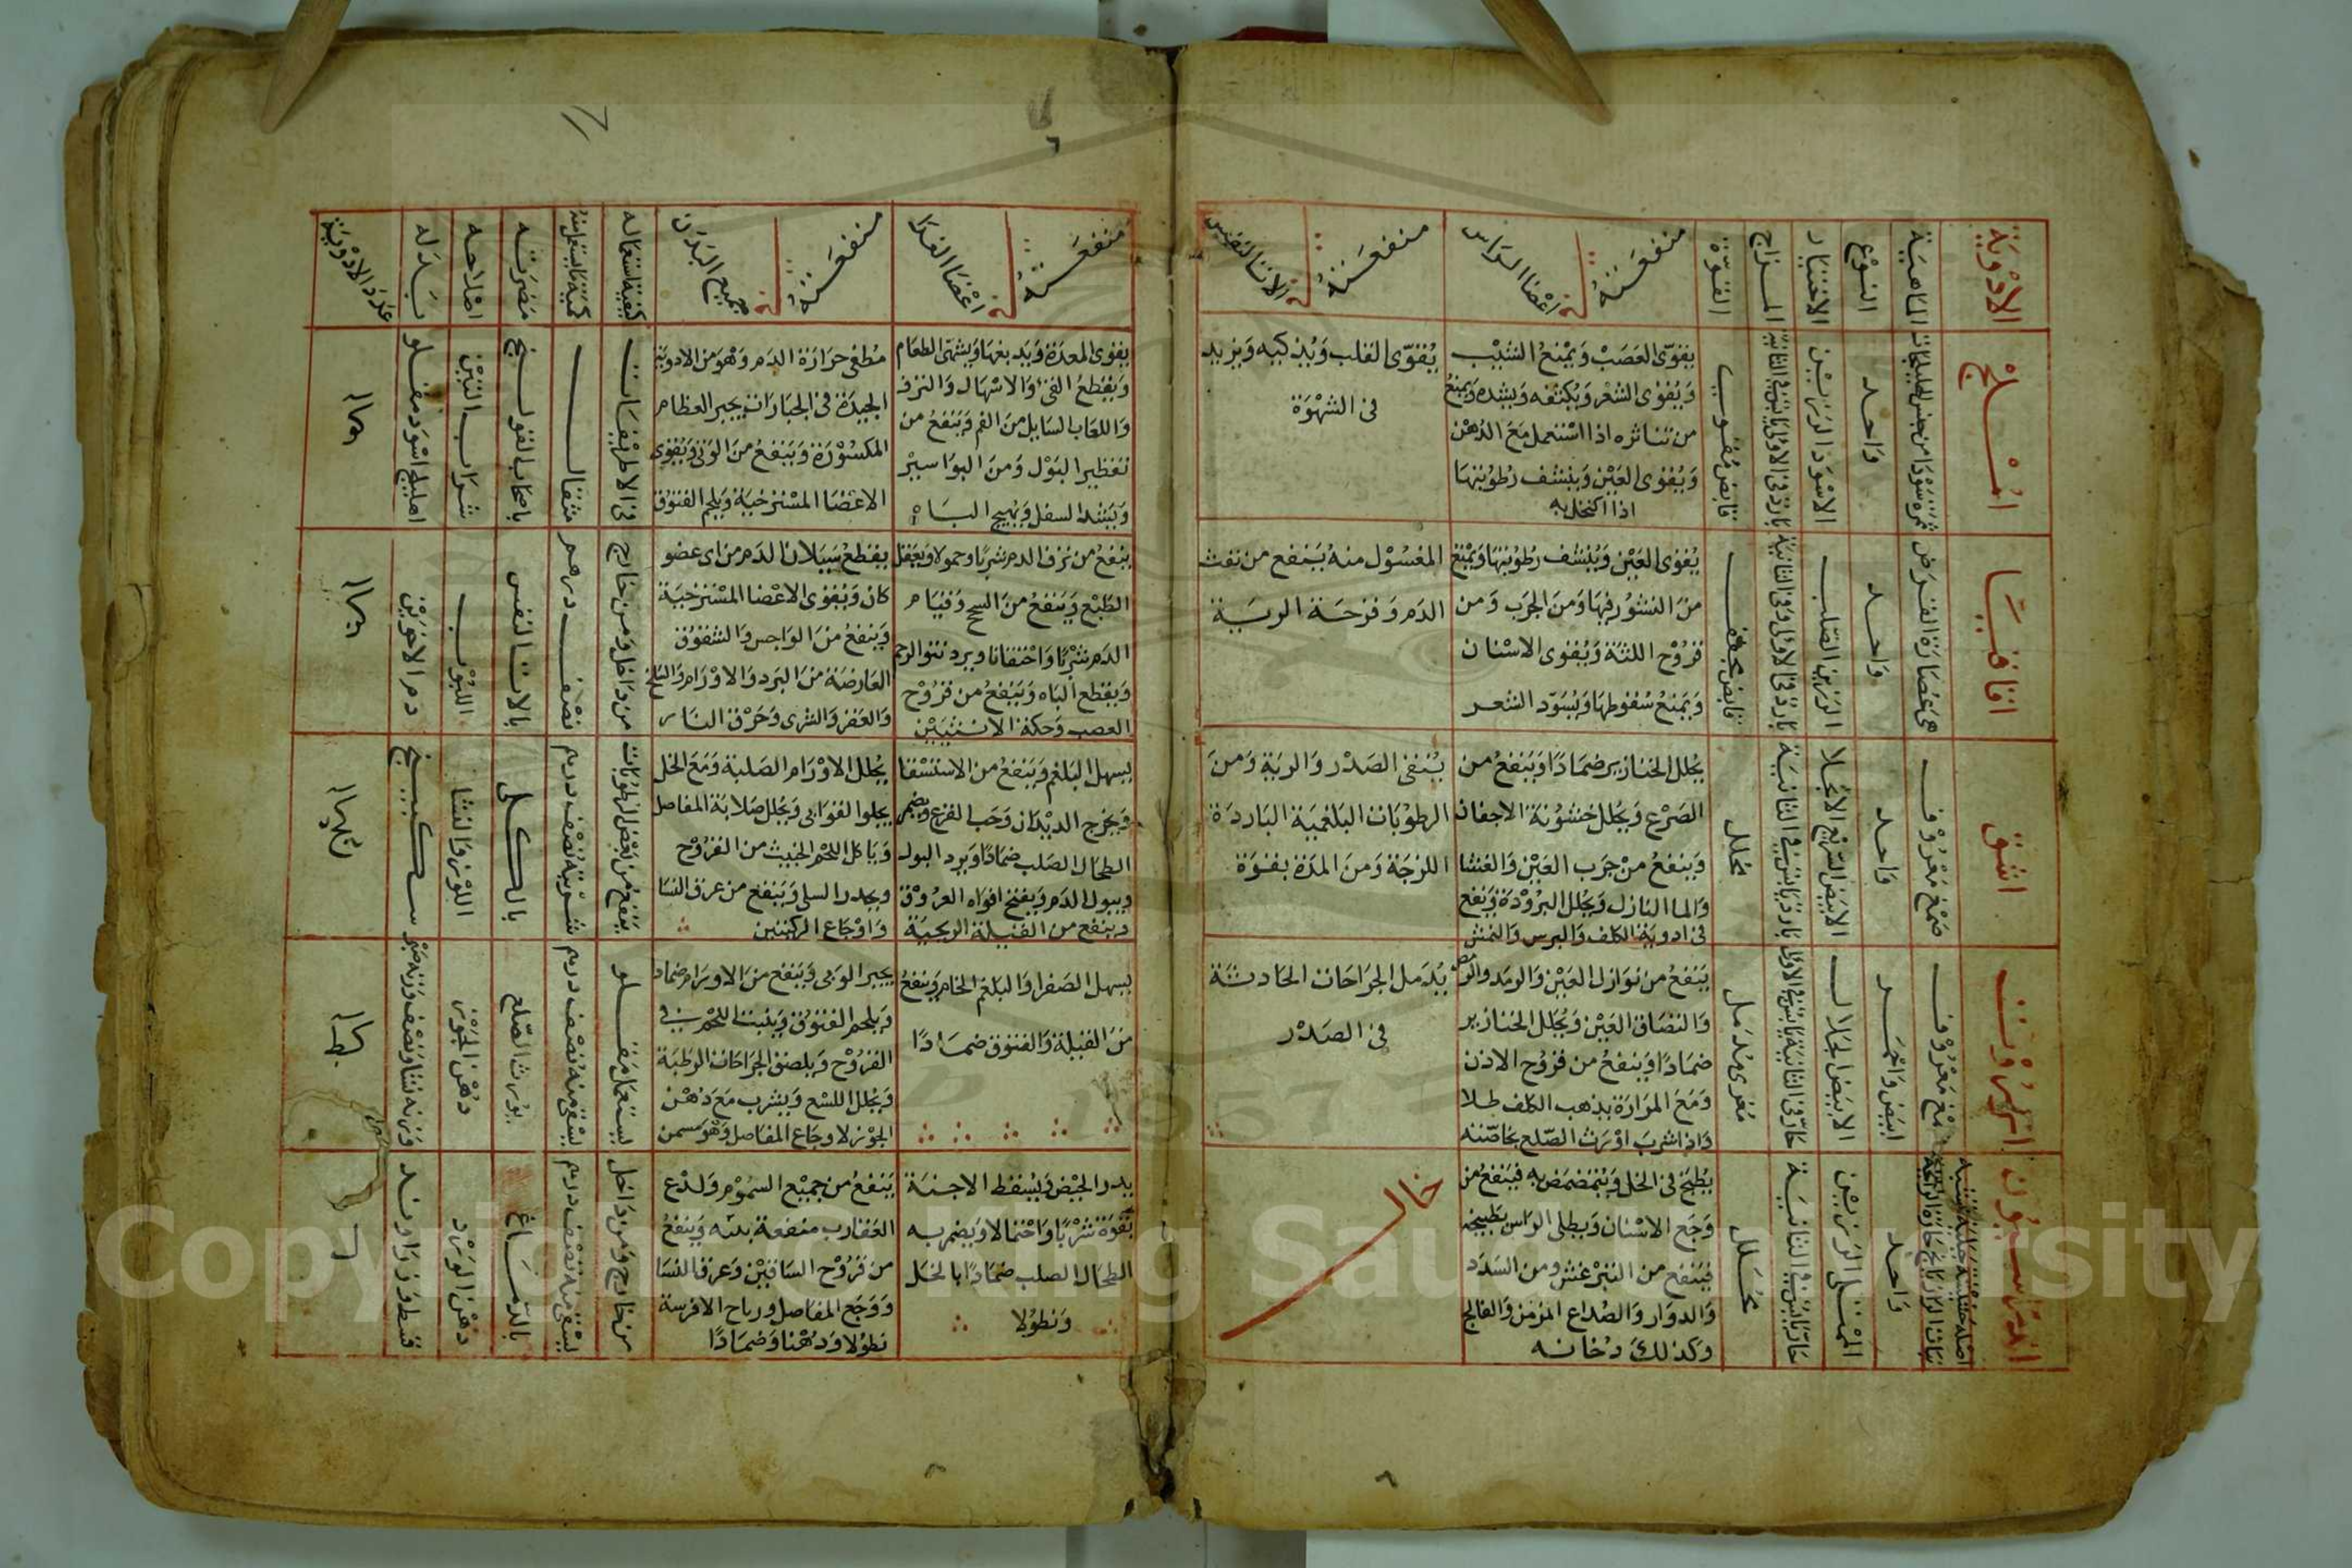 الادْوِيَة
الماهِيَة
النوْع
الاختيار
المزاج
القوّة
منفعَتهُ في اعْضَا الراس
منفعَتهُ في الات النفس
منفعَتهُ في اعْضَا الغدا
منفعَتهُ في جميع البَدَن
كيفية استعماله
كمية ما يستعمل منهُ
مَضرّته
اصْلاحه
بَدَله
عَدَد الادْويَة
امْلَج
واحد
الاسْوَد الرزين
بارد في الاولى يابس في الثانية
قابض مُقوي
يقوّي العَصَبْ وَيمْنعُ الشيْب
وَيُقوّي الشعْر وَيُكثفه وَيشده وَيمنعُ
من تناثره اذا استعمل مَعَ الدُهن
وَيُقوى العَيْن وَينشف رُطوبتها
اذا اكتحل به
يُقوّى القلب وَيُذكيه وَيزيد
في الشهْوَة
يقوى المعدَة وَيَدبغهَا وَيشهّى الطعَام
وَيَقطع القئ وَالاسْهَال وَالنزف
وَاللعَاب السَايل منَ الفم وَيَنفعُ من
تقطير البَوْل وَمنَ البوَاسيرْ
وَيَشد السفل وَيهيج البَاه
مُطفى حرَارَة الدَم وَهوَ من الادوية
الجيدَة في الجبَارَات يجبر العظام
المكسُوْرَة وَيَنفعُ منَ الوَنى وَيُقوى
الاعضَا المسْترخيَة وَيلحم الفتوُق
في الاطريفلات
مثقال
باصحَاب القولنج
شرَاب التيْن
اهليلج اسْوَد مقلو
اقاقيَا
هيَ عُصَارَة القَرَض
وَاحد
الرزين الصّلب
بَارد في الاولى وَفي الثانية
قابض مجفف
يُقوى العَيْن وَيُنشف رُطوبتها وَيمْنعُ
منَ النشوُر فيهَا وَمنَ الجَرَب وَمن
قرُوْح اللثة وَيُقوى الاسْنان
وَيَمْنعُ سُقوُطهَا وَيُسَوّد الشعر
المغسُوْل منهُ يَنفع من نفث
الدَم وَقرحَة الريّة
يَنفعُ من نزف الدم شربًا وحمولا وَيعَقل
الطَبْع وَيَنفعُ منَ السحج وَقيَام
الدَم شرْبًا وَاحْتقانا ويرد نتو الرحم
وَيَقطع البَاه وَيَنفعُ من قرُوْح
العصب وَحكة الانثيَيْن
يقطعُ سَيَلان الدَم من اى عضو
كان وَيُقوى الاعْضا المسْترخيَة
وَيَنفعُ منَ الواحس وَالشقوُق
العَارضَة منَ البَرد وَالاوْرَام
وَالعَقر وَالشرى وَحَرْق النَار
من دَاخل وَمن خَارج
نصْف درهم
بالات النفس
دم الاخوَيْن
اشق
صَمغ مَعْرُوْف
وَاحد
الابيَض السَريْع الانجلا
محلل
يُحلل الخنازير ضمَادًا وَيَنفعُ من
الصَرْع وَيُحلل خشوُنة الاجفان
وَيَنفعُ منْ جرَب العَيْن وَالغشا
وَالما النازل وَيُحلل البرُوْدَة وَيَنفع
في ادويَة الكلف وَالبرس وَالنمش
يُنقى الصَدْر وَالريَة وَمنَ
الرطوُبَات البَلغميَة البَاردَة
اللزجَة وَمنَ المدَة بقوَة
يسهل البَلغم وَيَنفعُ من الاستسقا
وَيخرج الديْدَان وَحَب القرع وَيضمر
الطحَال الصَلب ضمَادًا وَيَدر البول
ويبول الدَم وَيفتح افوَاه العرُوْق
وينفع من القيلة الريحيَة
يُحلل الاوْرَام الصَلبَة وَمَعَ الخل
يجلوا القوَابى وَيُحلل صَلابَة المفاصل
وَيَاكل اللحْم الخبيث من القرُوْح
ويحدر السلى وَيَنفع من عرق النسَا
وَاوْجَاع الركبتين
بالكلى
اللوز وَالنشا
سكبينج
انزرُوْت
صَمغ مَعْرُوْف
ابيَض وَاحْمَر
الابيَض الجَلال
مُغرى مُدَمل
يَنفعُ من نوَازل العَيْن وَالرمَد وَالرمص
وَالتصَاق العَيْن وَيُحلل الخنازير
ضمَادًا وَيَنفعُ من قرُوْح الاذن
وَمَعَ المرَارَة يذهب الكلف طلا
وَاذا شربَ اوْرَث الصّلع بخَاصّته
يُدَمل الجرَاحَات الحَادثة
في الصَدْر
يسهل الصَفرَا وَالبَلغم الخَام وَيَنفعُ
منَ القيلة وَالفتوق ضمَادًا
يجبر الوَنى وَيَنفع منَ الاورَام ضمَادا
وَيلحم الفتوُق وَيَنبت اللحْم في
القرُوْح وَيلصق الجرَاحَات الرطبَة
وَيُحلل اللسع وَيشرب مَعَ دهْن
الجوْز لاوجَاع المفاصل وَهوَ مسمن
يستعمَل مقلو
يسقى منهُ نصْف درهم
يورث الصّلع
دُهْن الجَوْز
وَزنه نشا وَنصْف وَزنه صَبر
اندرَاسيوُن
وَاحد
الممْتلى الرزيْن
حَار يَابس في الثانيَة
مُحَلل
يُطبَخ في الخَل وَيُتَمضمَض به فيَنفعُ من
وَجَع الاسْنان وَيطلى الرَاس بطبيخه
فيَنفع من الليثرغس ومن السدَد
وَالدوَار وَالصُدَاع المزمن وَالفالج
وَكذلكَ دُخَانه
خال
يدر الحيْض وَيُسقط الاجنة
بقوَة شرْبًا وَاحتمالا وَيضمر به
الطحَال الصلب ضمَادًا بالخَل
وَنطوُلا
يَنفعُ من جميْع السمُوْم وَلدغ
العَقارب منفعة بينه وَيَنفعُ
من قرُوْح السَاقيْن وَعرق النسَا
وَوَجَع المفاصل ورياح الافرسة
نطوُلا وَدهْنا وَضمَادًا
من خَارج وَمن دَاخل
يسقى منه نصْف درهم
بالدّمَاغ
دُهْن الوَرْد
قسط وَزرَاوند